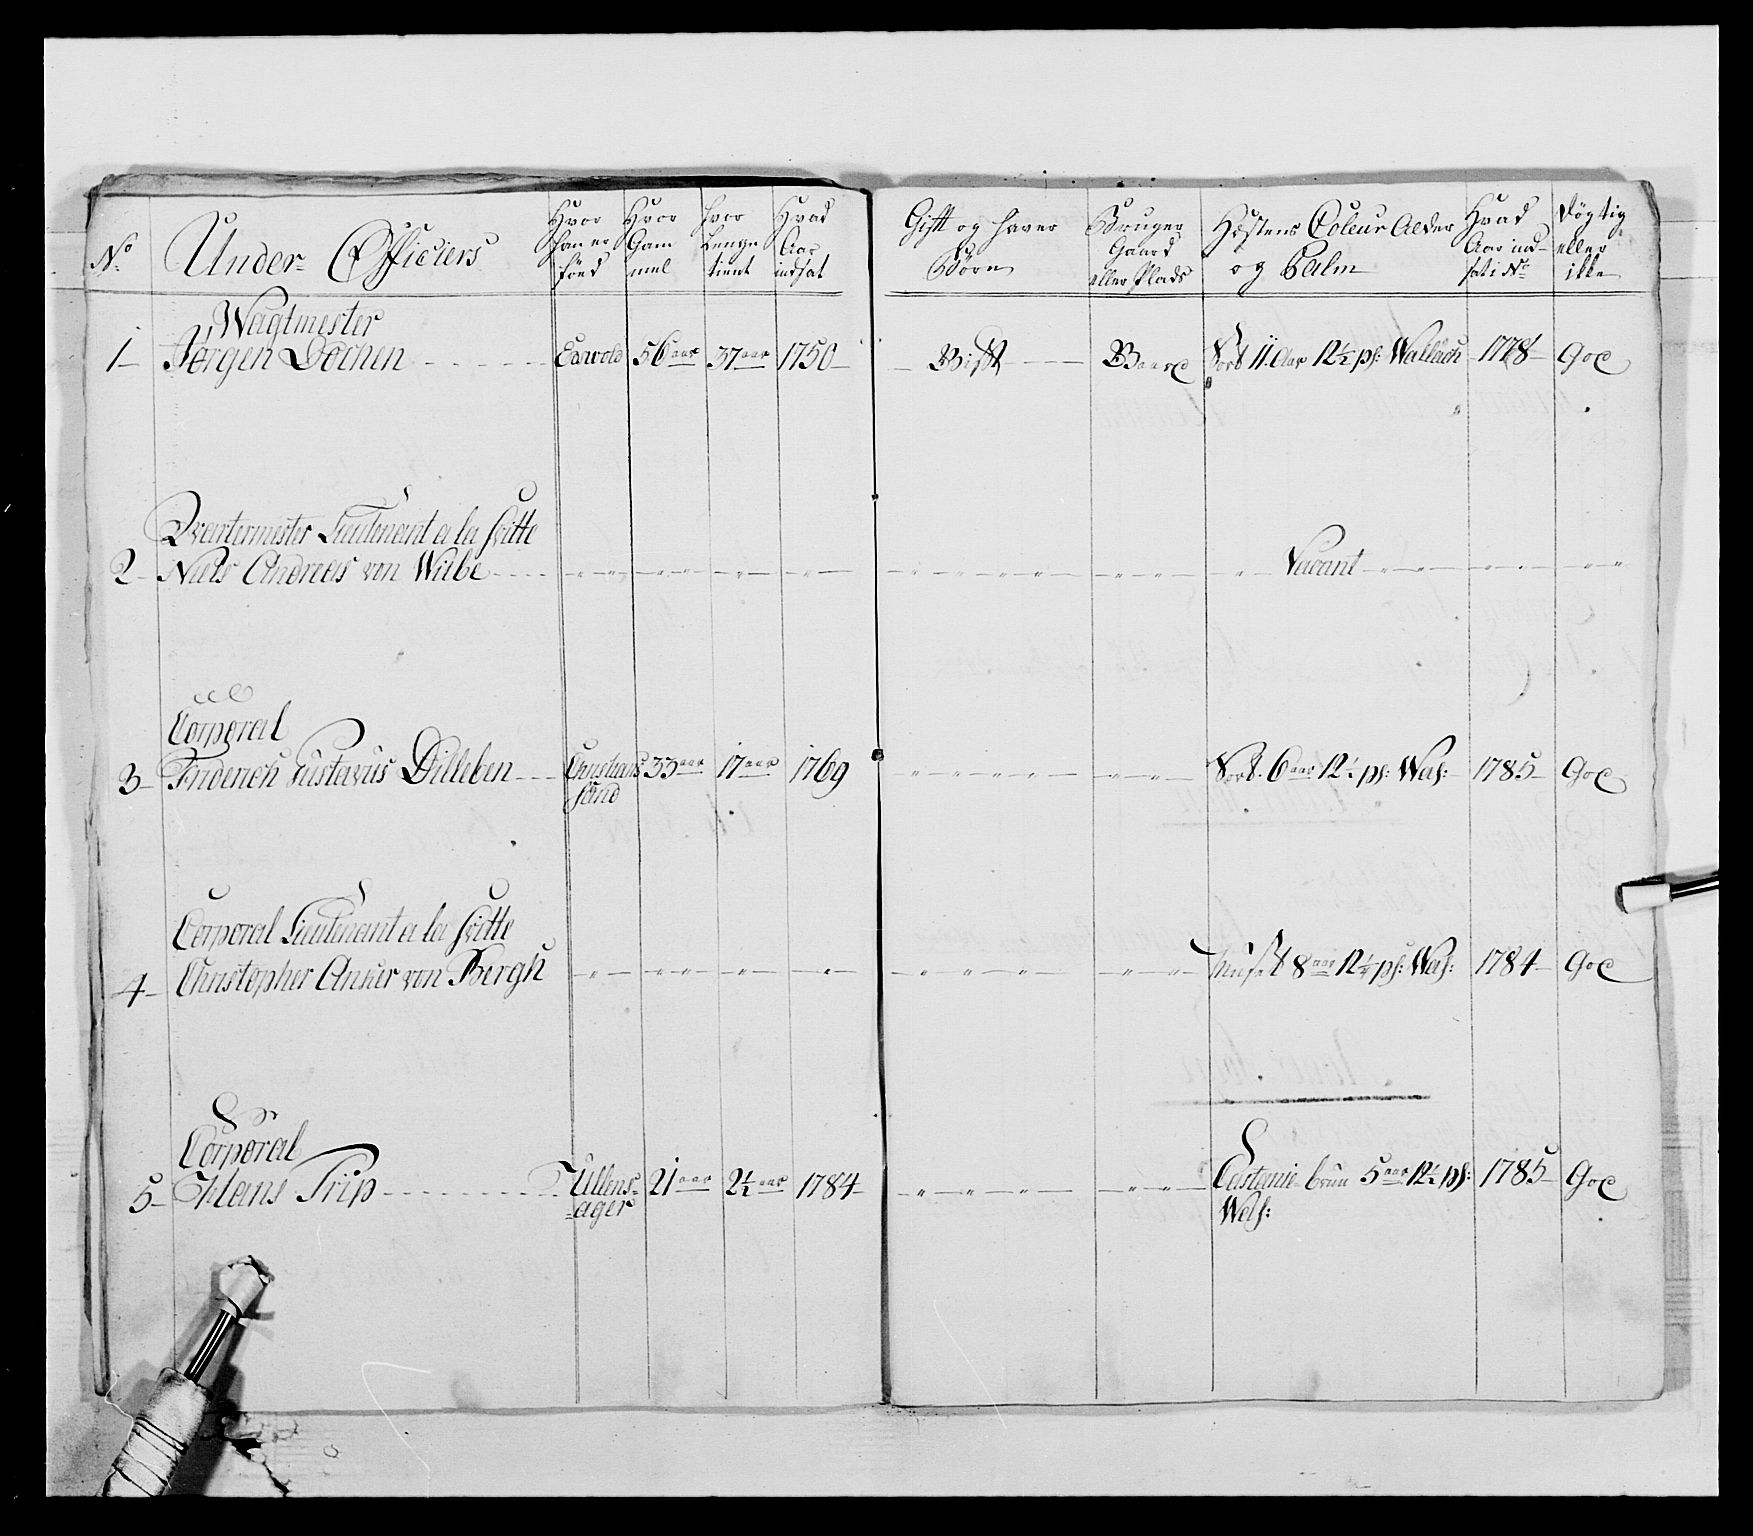 No Under-Officiers Hvor han er föed Hvor Gam mel hvor Lenge tient Hvad Aar indsat Gift og haver Börn Bruger Gaard eller Plads Hestens Coleur Alder og Palm Hvad Aar ind- sat i No Dögtig eller ikke
Wagtmester
1 Jörgen Lochen Eidwold 56 aar 37 aar 1750 Gift 11 Aar 12½ ps: Wallach 1778 God
Qvartermester Lieutenant a la Svitte
2 Niels Andreas von Wibe Vacant
Corporal
3 Friderich Gustavus Dilleben Christians sand 33 aar 17 aar 1769 Sort 6 aar 12½ ps: Wal: 1785 God
Corporal Lieutenant a la Svitte
4 Christopher Anker von Bergh 8 aar 12½ ps: Wal: 1784 God
Corporal
5 Hans Trip Ullens- ager 21 aar 2½ aar 1784 Castanie brun 5 aar 12½ ps: Wal: 1785 God